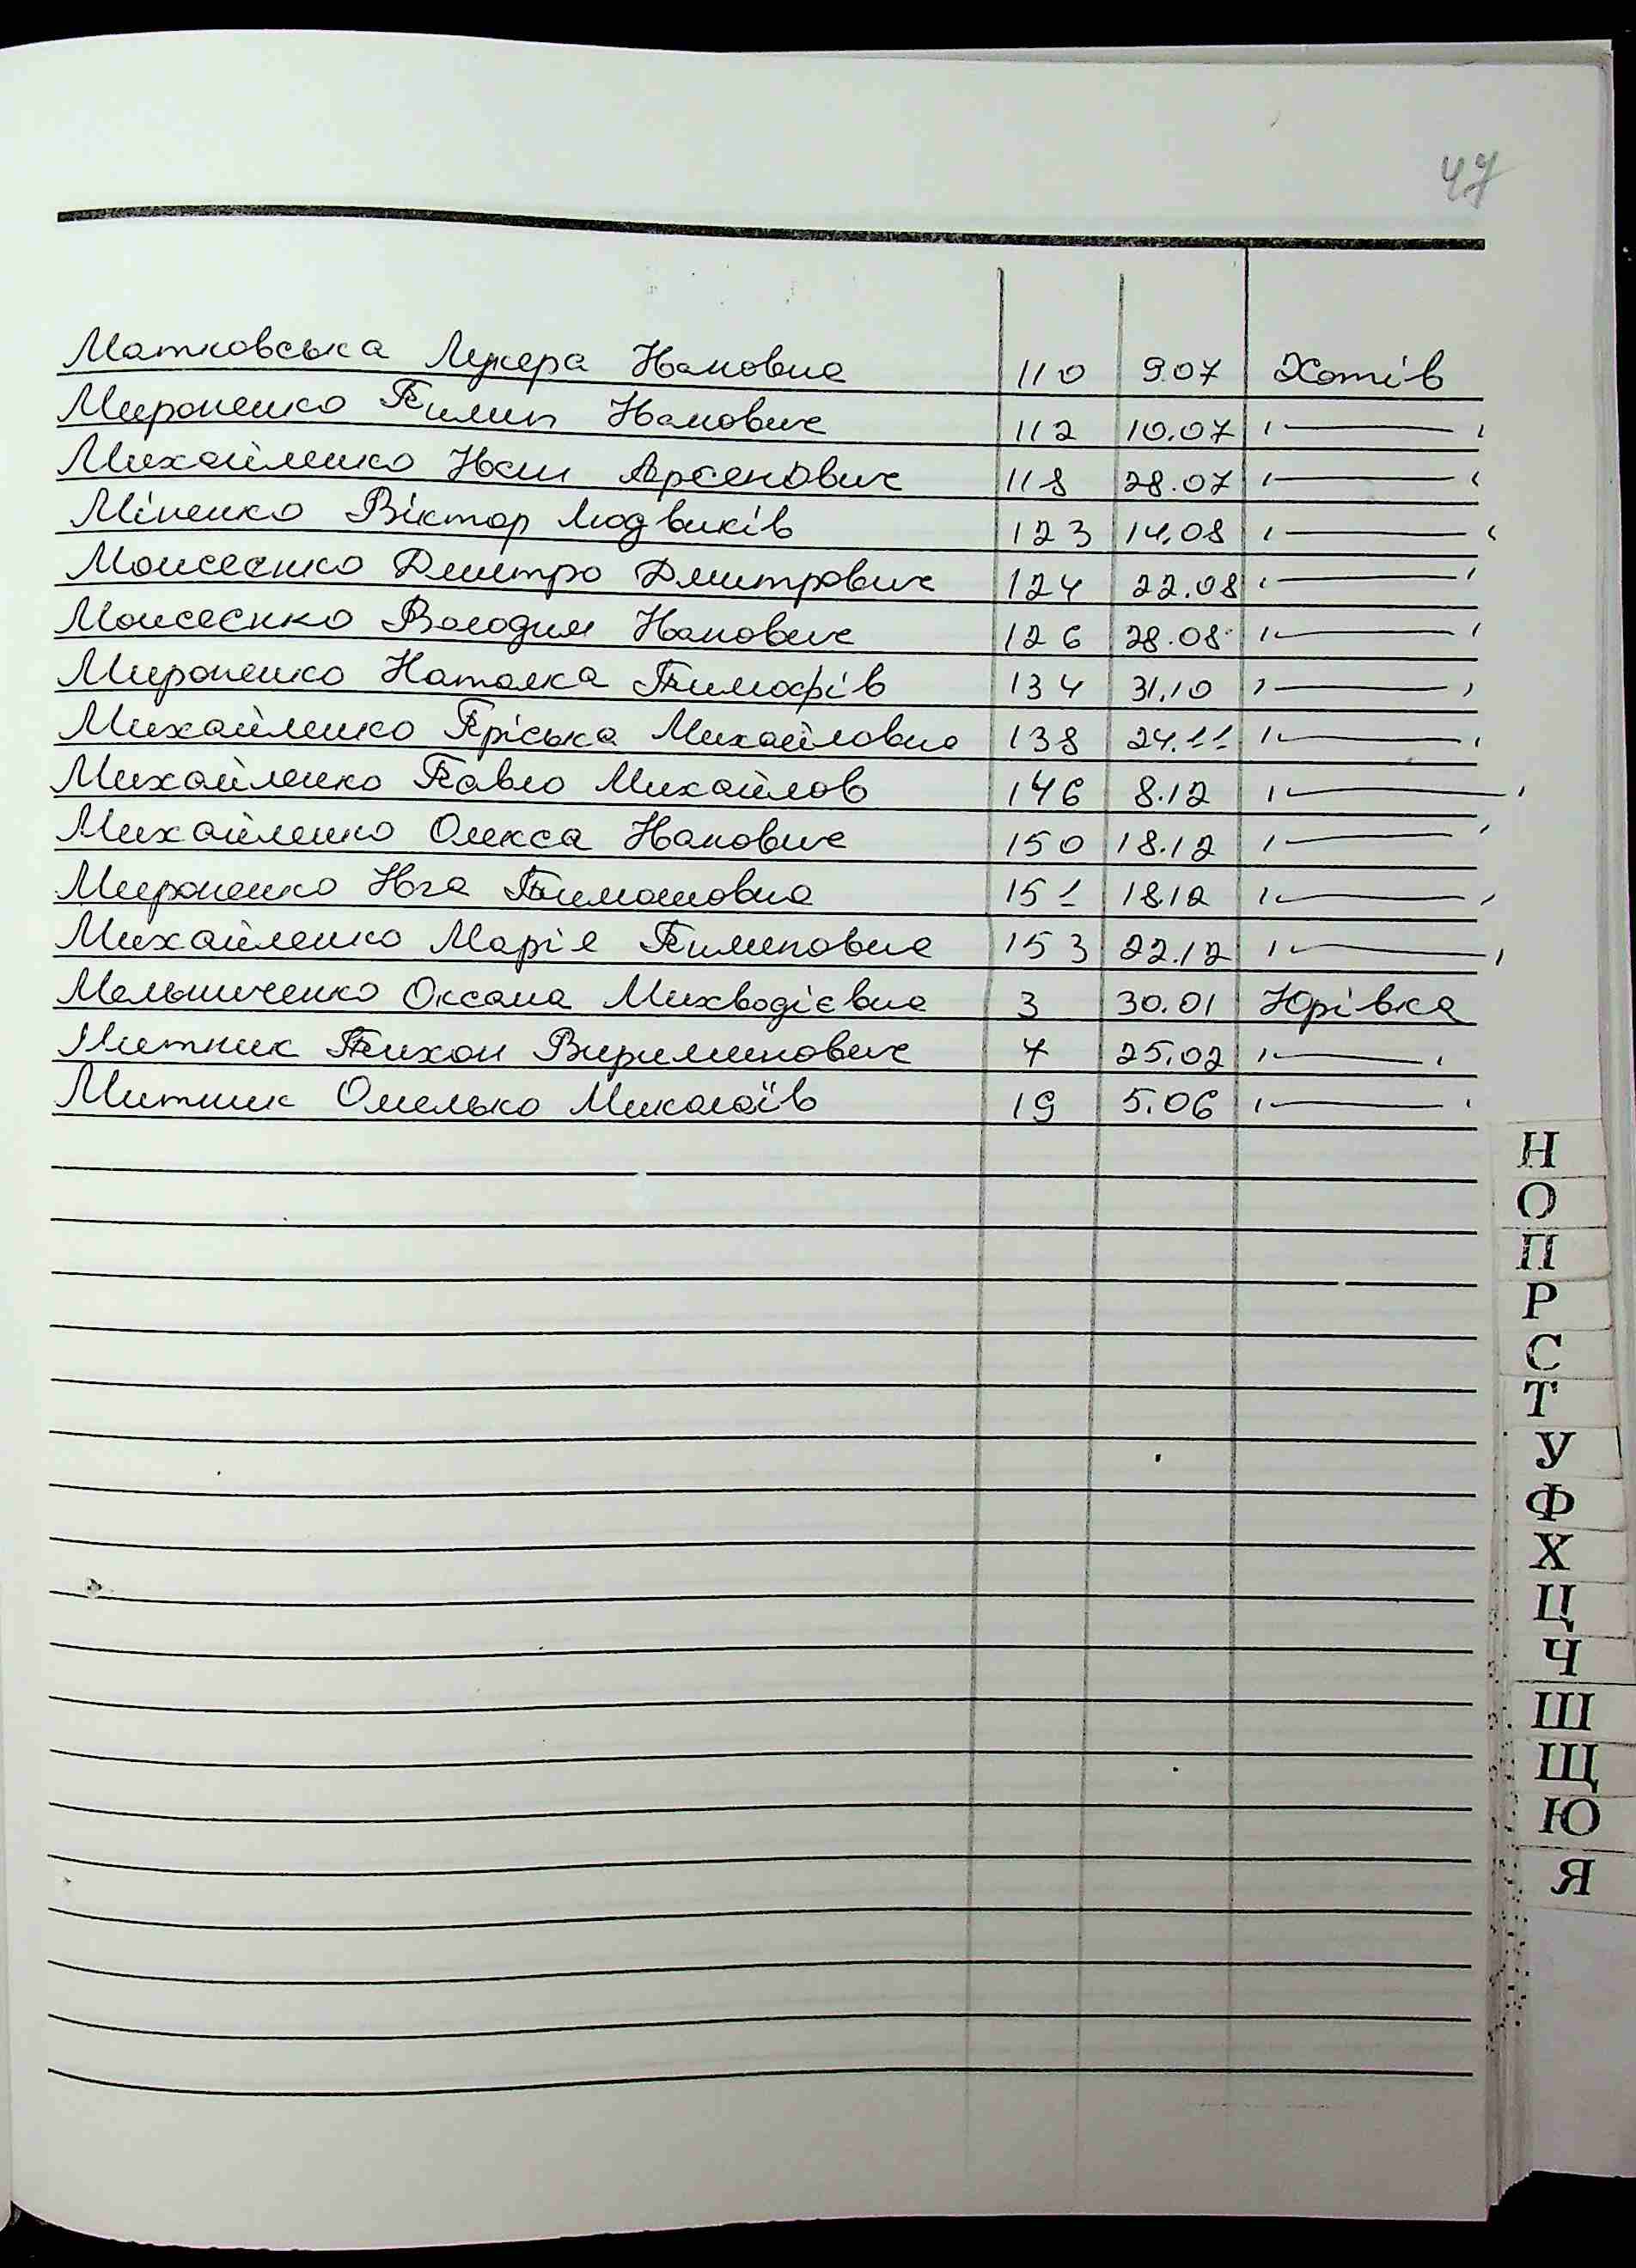 47
Матковська Лукера Івановна 110 9.07 Хотів
Мироненко Пилип Іванович 112 10.07 "———"
Михайленко Іван Арсенович 118 28.07 "———"
Міненко Віктор Людвиків 123 14.08 "———"
Моисеєнко Дмитро Дмитрович 124 22.08 "———"
Моисеєнко Володим Іванович 126 28.08 "———"
Мироненко Наталка Тимофів 134 31.10 "———"
Михайленко Пріська Михайловна 138 24.11 "———"
Михайленко Павло Михайлов 146 8.12 "———"
Михайленко Олекса Іванович 150 18.12 "———"
Мироненко Івга Тимошовна 151 18.12 "———"
Михайленко Марія Пилиповна 153 22.12 "———"
Мельниченко Оксана 3 30.01 Юрівка
Митник Тихон 7 25.02 "———"
Митник Омелько Миколаїв 19 5.06 "———"
Н
О
П
Р
С
Т
У
Ф
Х
Ц
Ч
Ш
Щ
Ю
Я